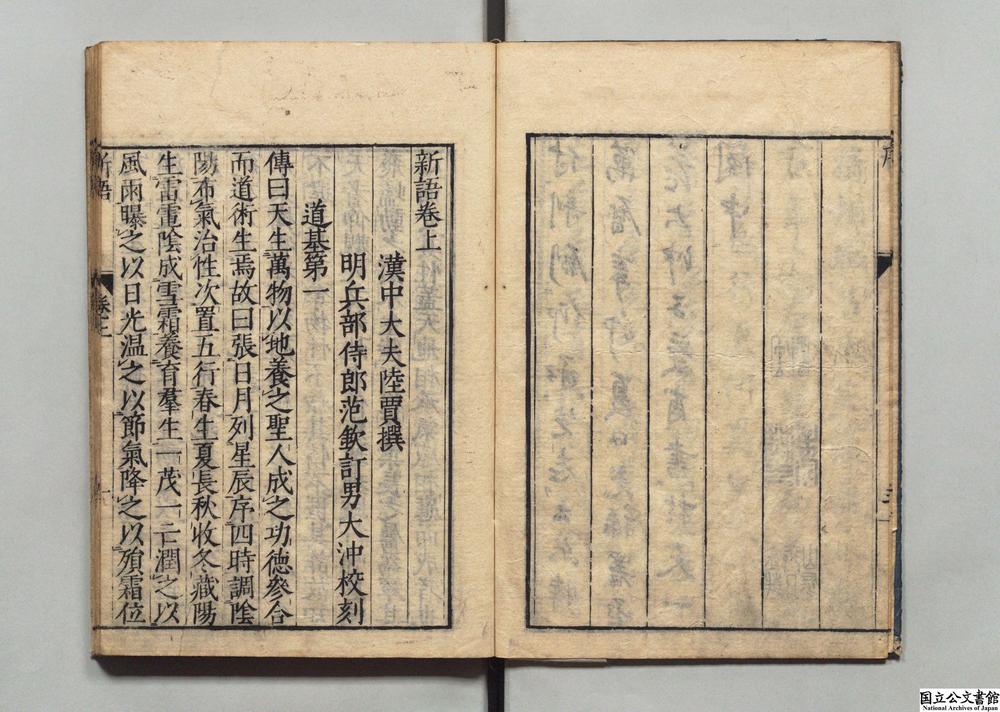 新語卷上
漢中大夫陸賈撰
明兵部侍郎范欽訂男大沖校刻
道基第一
傳曰天生萬物以地養之聖人成之功德參合
而道術生焉故曰張日月列星辰序四時調陰
陽布氣治性次置五行春生夏長秋收冬藏陽
生雷電陰成雪霜養育羣生一茂一亡潤之以
風雨曝之以日光温之以節氣降之以殞霜位
新語
卷上
国立公文書館
National Archives of Japan